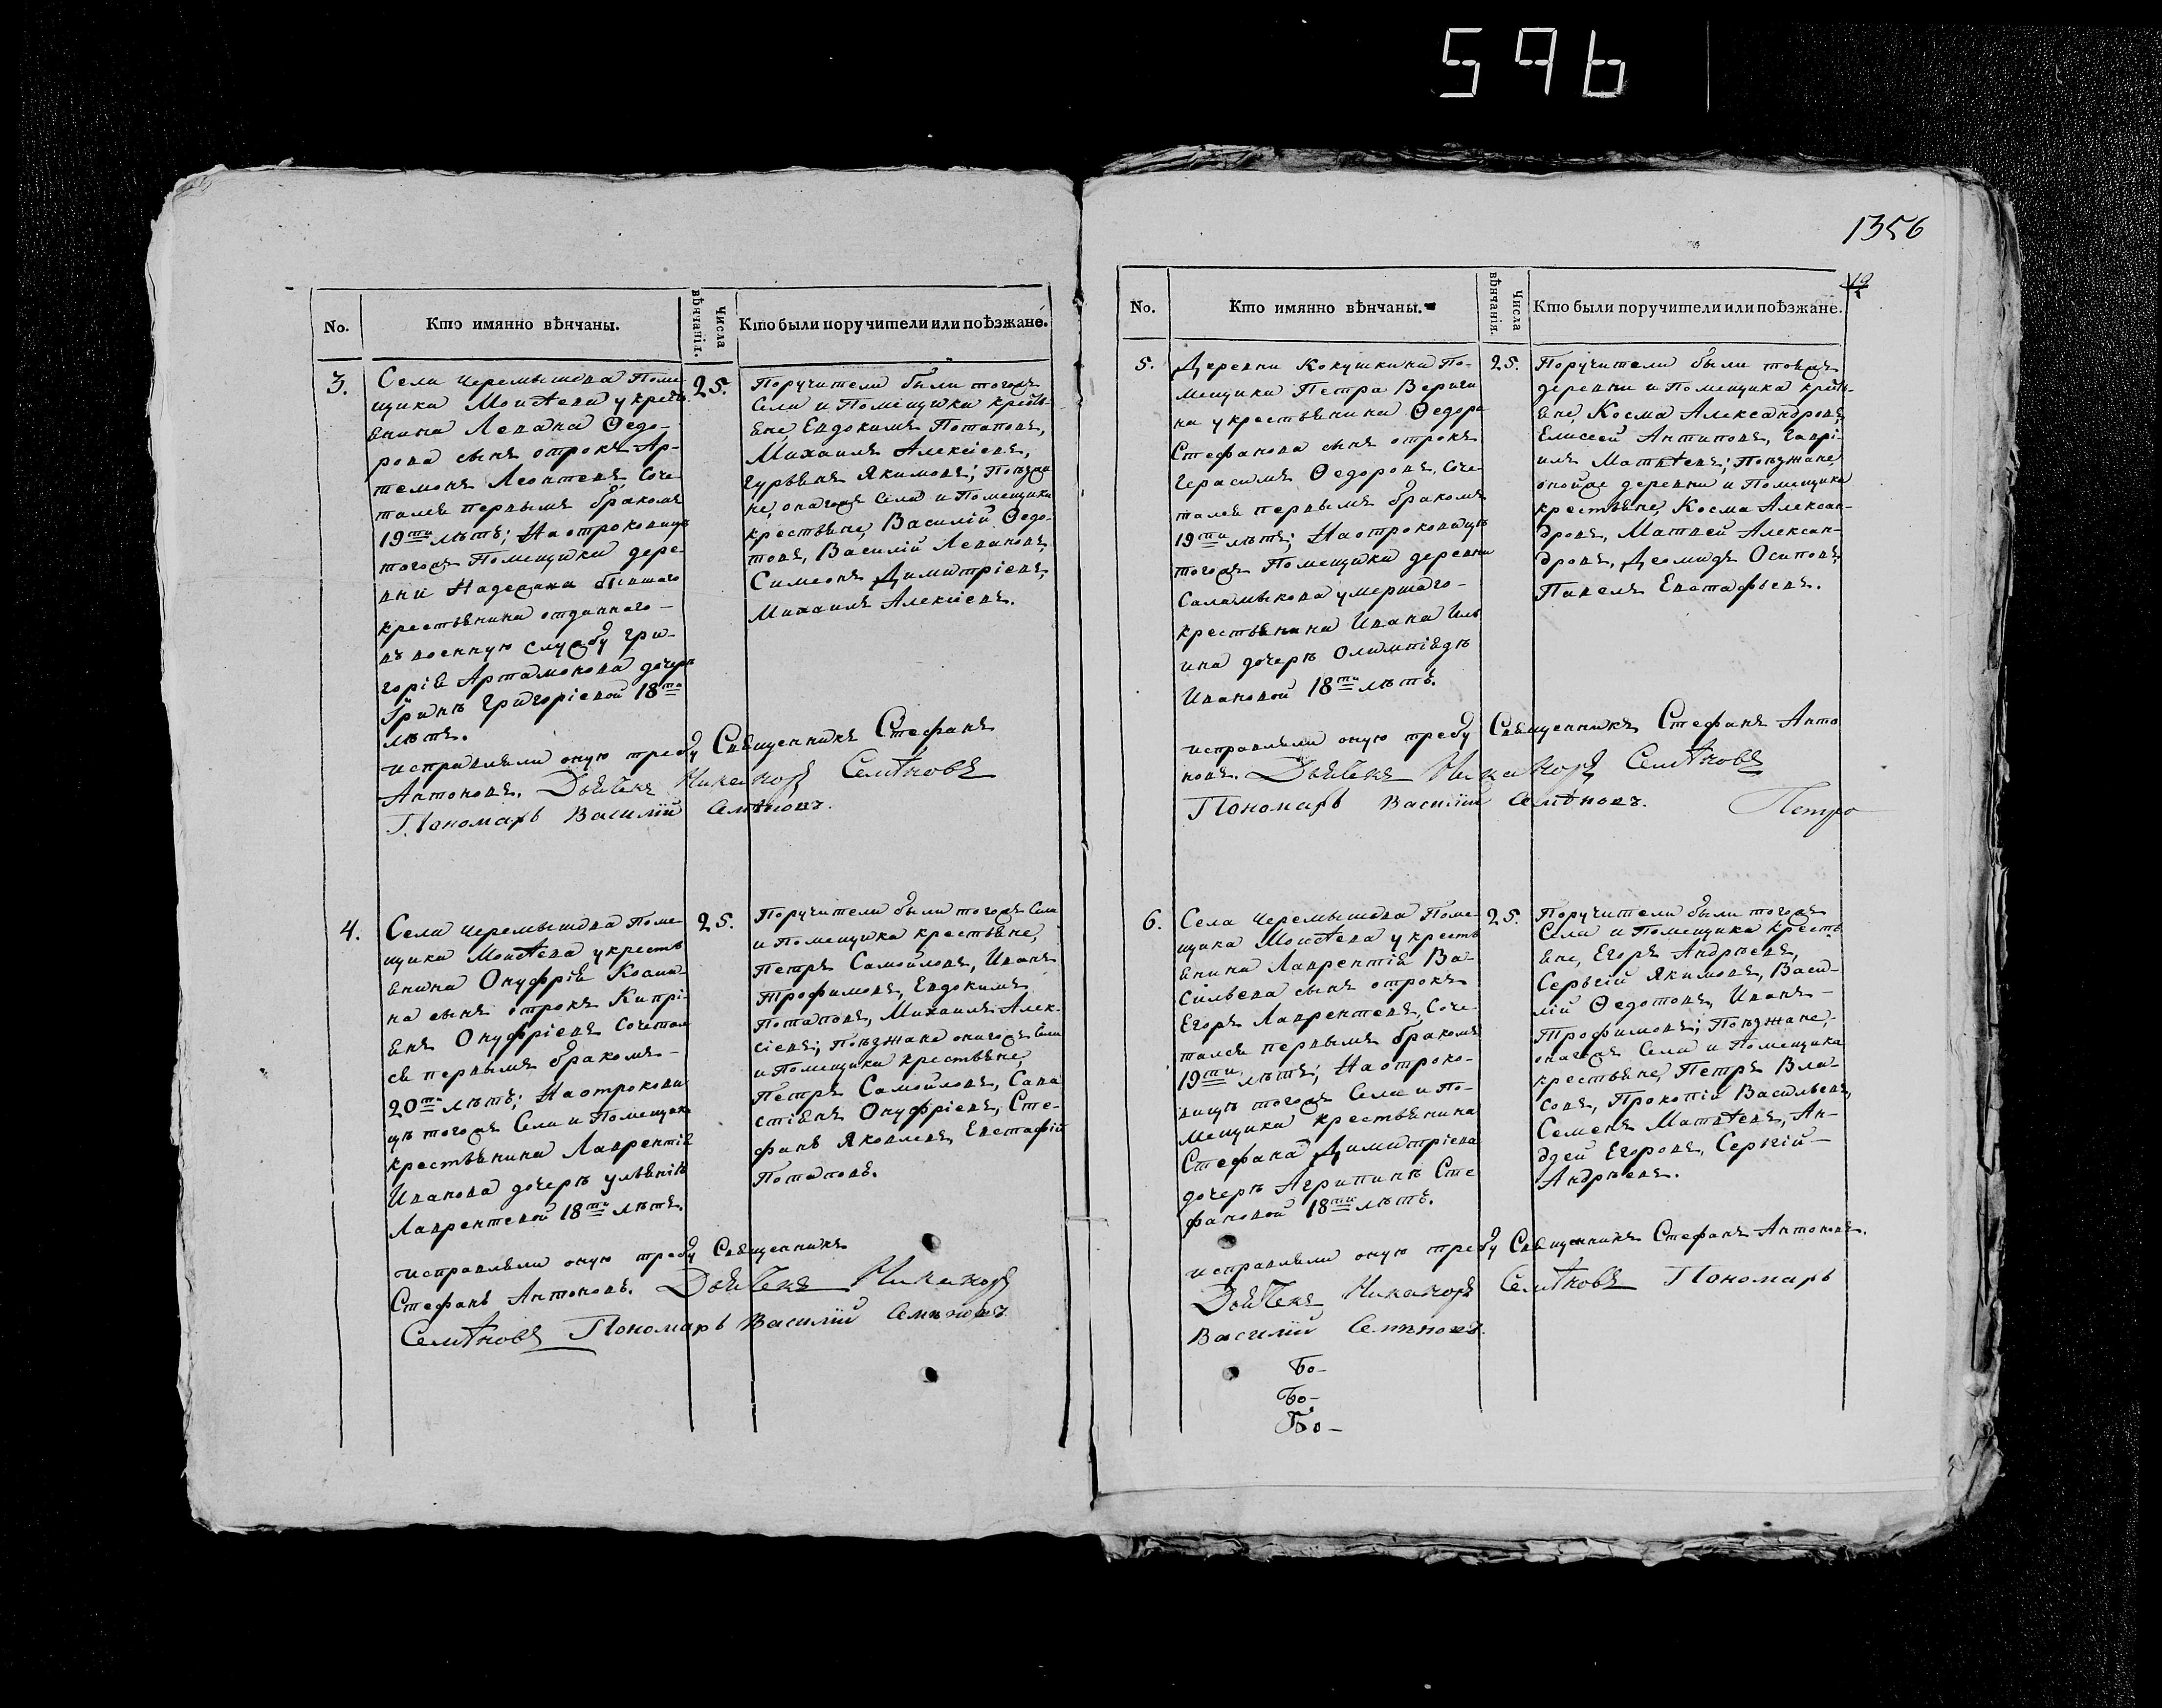 596
No.
Кто имянно вѣнчаны.
Числа вѣнчанія.
Кто были поручители или поѣзжане.
3.
Села Черемышева Поме-
щика Моисѣева у кресть-
янина Левана Ѳедо-
рова сынъ отрокъ Ар-
темонъ Леонтевъ, Соче-
тался первымъ бракомъ
19ти лѣтъ; На отроковицѣ
тогожъ Помещика дере-
вни бывшаго
крестьянина отданнаго
въ военную службу Гри-
горія Артамонова дочерѣ
Іринѣ Григоріевой 18ти
лѣтъ.
25.
Поручители были тогожъ
Села и Помещика кресть-
яне, Евдокимъ Потаповъ,
Михаилъ Алексіевъ,
Гурьянъ Якимовъ; Поѣзжа
не, онагожъ Села и Помещика
крестьяне, Василій Ѳедо-
товъ, Василій Левановъ,
Симеонъ Димитріевъ,
Михаилъ Алексіевъ.
исправляли оную требу Священникъ Стефанъ
Антоновъ. Дьячекъ Никаноръ Семѣновъ
Пономарь Василій Семѣновъ.
4.
Села Черемышева Поме-
щика Моисѣева у кресть
янина Онуфрія Козми-
на сынъ отрокъ Кипрі-
янъ Онуфріевъ Сочетал
ся первымъ бракомъ
20ти лѣтъ; На отрокови
цѣ тогожъ Села и Помещика
крестьянина Лаврентія
Иванова дочерѣ Ульяніѣ
Лаврентевой 18ти лѣтъ.
25.
Поручители были тогожъ Села
и Помещика крестьяне,
Петръ Самойловъ, Иванъ
Трофимовъ, Евдокимъ
Потаповъ, Михаилъ Алек-
сіевъ; Поѣзжана онагожъ Села
и Помещика крестьяне,
Петръ Самойловъ, Сава
стіянъ Онуфріевъ, Сте-
фанъ Яковлевъ, Евстафій
Потаповъ.
исправляли оную требу Священникъ
Стефанъ Антоновъ. Дьячекъ Никаноръ
Семѣновъ Пономарь Василій Семѣновъ
1356
No.
Кто имянно вѣнчаны.
Числа вѣнчанія.
Кто были поручители или поѣзжане.
5.
Деревни Кокушкина По-
мещика Петра Вериги
на у крестьянина Ѳедора
Стефанова сынъ отрокъ
Герасимъ Ѳедоровъ, Соче-
тался первымъ бракомъ
19ти лѣтъ; На отроковицѣ
тогожъ Помещика деревни
Саламыкова умершаго
крестьянина Ивана Иль
ина дочерѣ Олимпіядѣ
Ивановой 18ти лѣтъ.
25.
Поручители были тояжъ
деревни и Помещика кресть-
яне, Косма Александровъ,
Елисей Антиповъ, Гаврі-
илъ Матвѣевъ; Поѣзжане,
оной же деревни и Помещика
крестьяне, Косма Алексан-
дровъ, Матвей Алексан-
дровъ, Деомидъ Осиповъ,
Павелъ Евстафьевъ.
исправляли оную требу Священникъ Стефанъ Анто
новъ. Дьячекъ Никаноръ Семѣновъ
Пономарь Василій Семѣновъ.
Петро
6.
Села Черемышева Поме-
щика Моисѣева у кресть
янина Лаврентія Ва-
сильева сынъ отрокъ
Егоръ Лаврентевъ, Соче-
тался первымъ бракомъ
19ти лѣтъ; На отроко-
вицѣ тогожъ Села и По-
мещика крестьянина
Стефана Димитріева
дочерѣ Агрипинѣ Сте
фановой 18ти лѣтъ.
25.
Поручители были тогожъ
Села и Помещика кресть
яне, Егоръ Андрѣевъ,
Сергій Якимовъ, Васи-
лій Ѳедотовъ, Иванъ
Трофимовъ; Поѣзжане,
онагожъ Села и Помещика
крестьяне, Петръ Вла-
совъ, Прокопій Васильевъ,
Семенъ Матвѣевъ, Ан-
дрей Егоровъ, Сергій
Андрѣевъ.
исправляли оную требу Священникъ Стефанъ Антоновъ.
Дьячекъ Никаноръ Семѣновъ Пономарь
Василій Семѣновъ.
Бо-
Бо-
Бо-